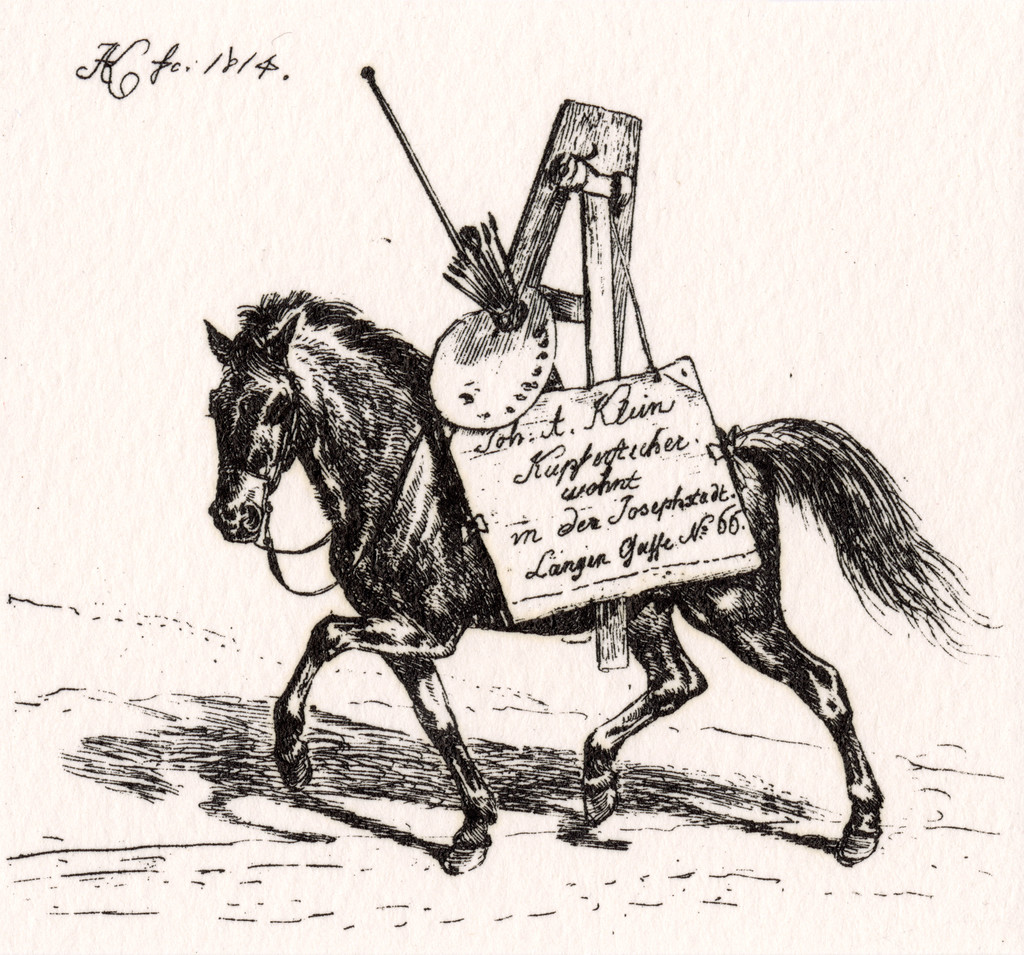 JAK fec: 1814.
Joh: A. Klein
Kupferstecher.
wohnt
in der Josephstadt.
Längen Gasse No 66.